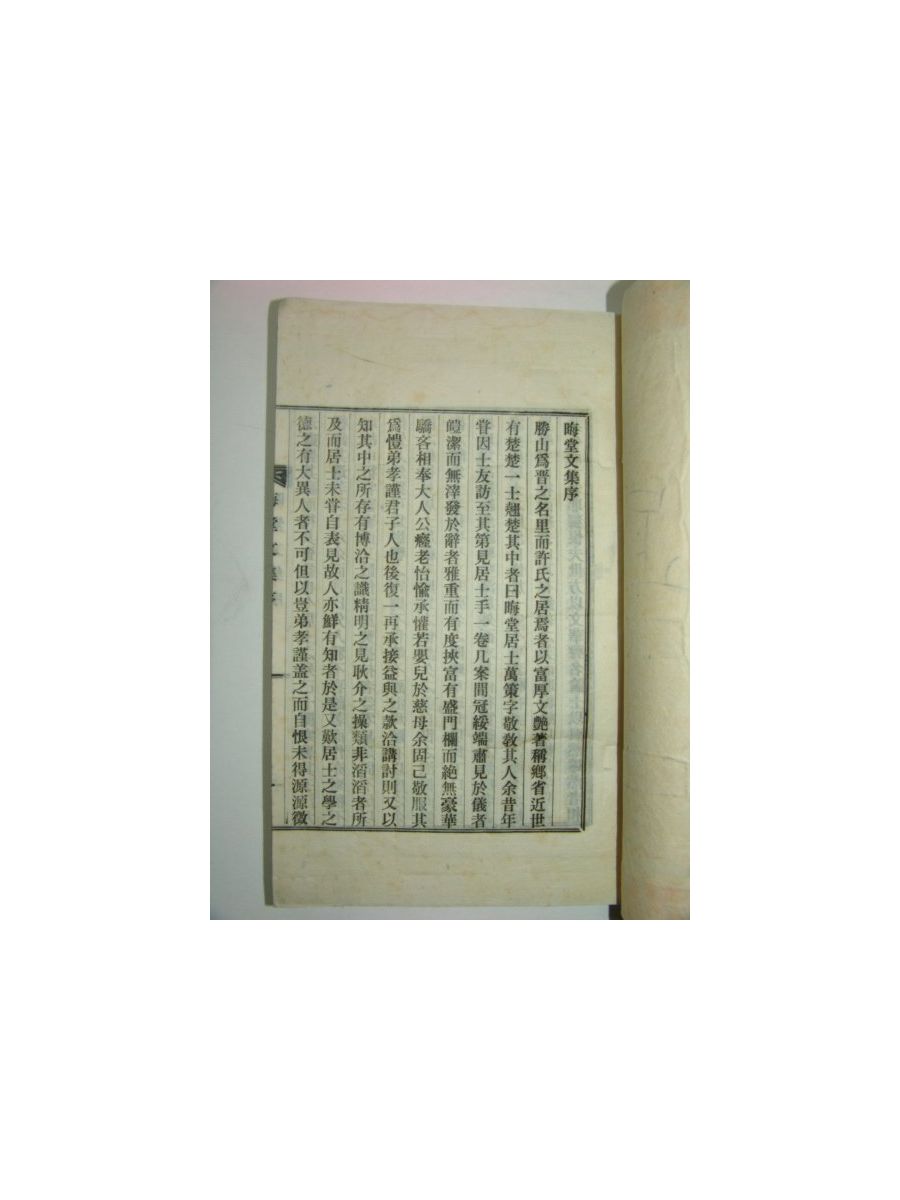 晦堂文集序
勝山爲晋之名里而許氏之居焉者以富厚文艶著稱鄕省近世
有楚楚一士翹楚其中者曰晦堂居士萬策字敬敎其人余昔年
甞因士友訪至其第見居士手一卷几案間冠綏端肅見於儀者
皚潔而無滓發於辭者雅重而有度挾富有盛門欄而絶無豪華
驕吝相奉大人公癃老怡愉承懽若嬰兒於慈母余固己敬服其
爲愷弟孝謹君子人也後復一再承接益與之款洽講討則又以
知其中之所存有博洽之識精明之見耿介之操類非滔滔者所
及而居士未甞自表見故人亦鮮有知者於是又歎居士之學之
德之有大異人者不可但以豈弟孝謹盖之而自恨未得源源徵
晦堂文集序
一